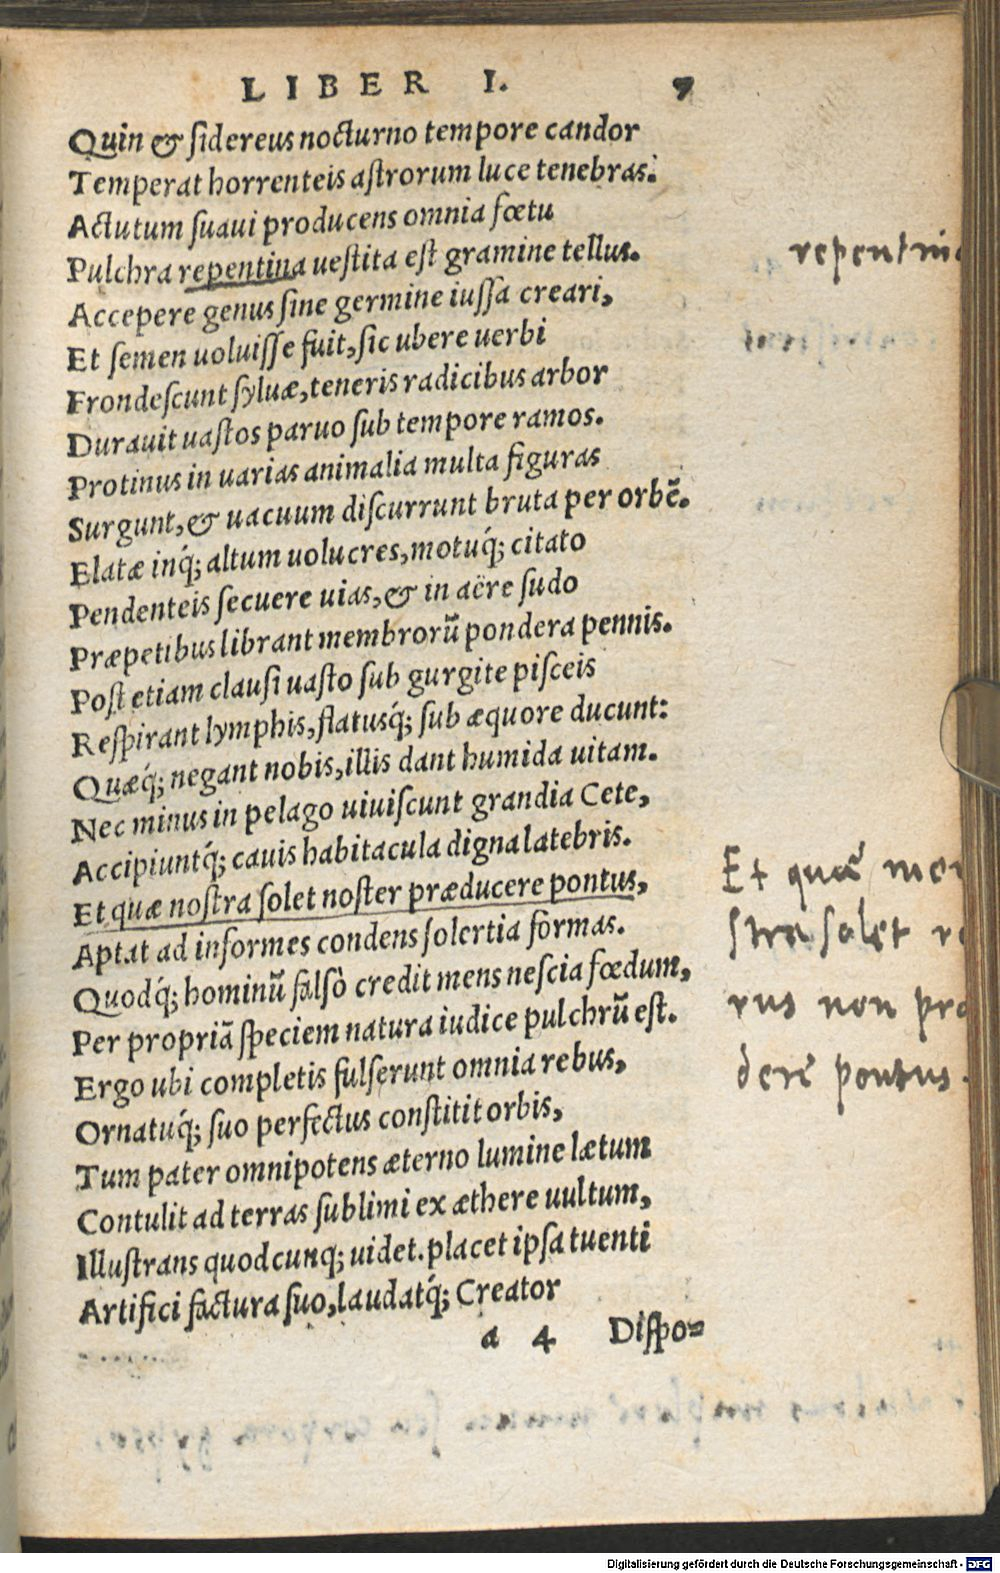 LIBER I. 7
Quin & sidereus nocturno tempore candor
Temperat horrenteis astrorum luce tenebras.
Actutum suaui producens omnia fœtu
Pulchra repentina uestita est gramine tellus.
Accepere genus sine germine iussa creari,
Et semen uoluisse fuit, sic ubere uerbi
Frondescunt syluæ, teneris radicibus arbor
Durauit uastos paruo sub tempore ramos.
Protinus in uarias animalia multa figuras
Surgunt, & uacuum discurrunt bruta per orbē.
Elatæ inq́; altum uolucres, motuq́; citato
Pendenteis secuere uias, & in aëre sudo
Præpetibus librant membrorū pondera pennis.
Post etiam clausi uasto sub gurgite pisceis
Respirant lymphis, flatusq́; sub æquore ducunt:
Quæq́; negant nobis, illis dant humida uitam.
Nec minus in pelago uiuiscunt grandia Cete,
Accipiuntq́; cauis habitacula digna latebris.
Et quæ nostra solet noster præducere pontus,
Aptat ad informes condens solertia formas.
Quodq́; hominū falsò credit mens nescia fœdum,
Per propriā speciem natura iudice pulchrū est.
Ergo ubi completis fulserunt omnia rebus,
Ornatuq́; suo perfectus constitit orbis,
Tum pater omnipotens æterno lumine lætum
Contulit ad terras sublimi ex æthere uultum,
Illustrans quodcunq; uidet. placet ipsa tuenti
Artifici factura suo, laudatq́; Creator
a 4 Dispo=
repentin
Et quæ mon
stra solet
rus non pro
dere pontus.
Digitalisierung gefördert durch die Deutsche Forschungsgemeinschaft - DFG